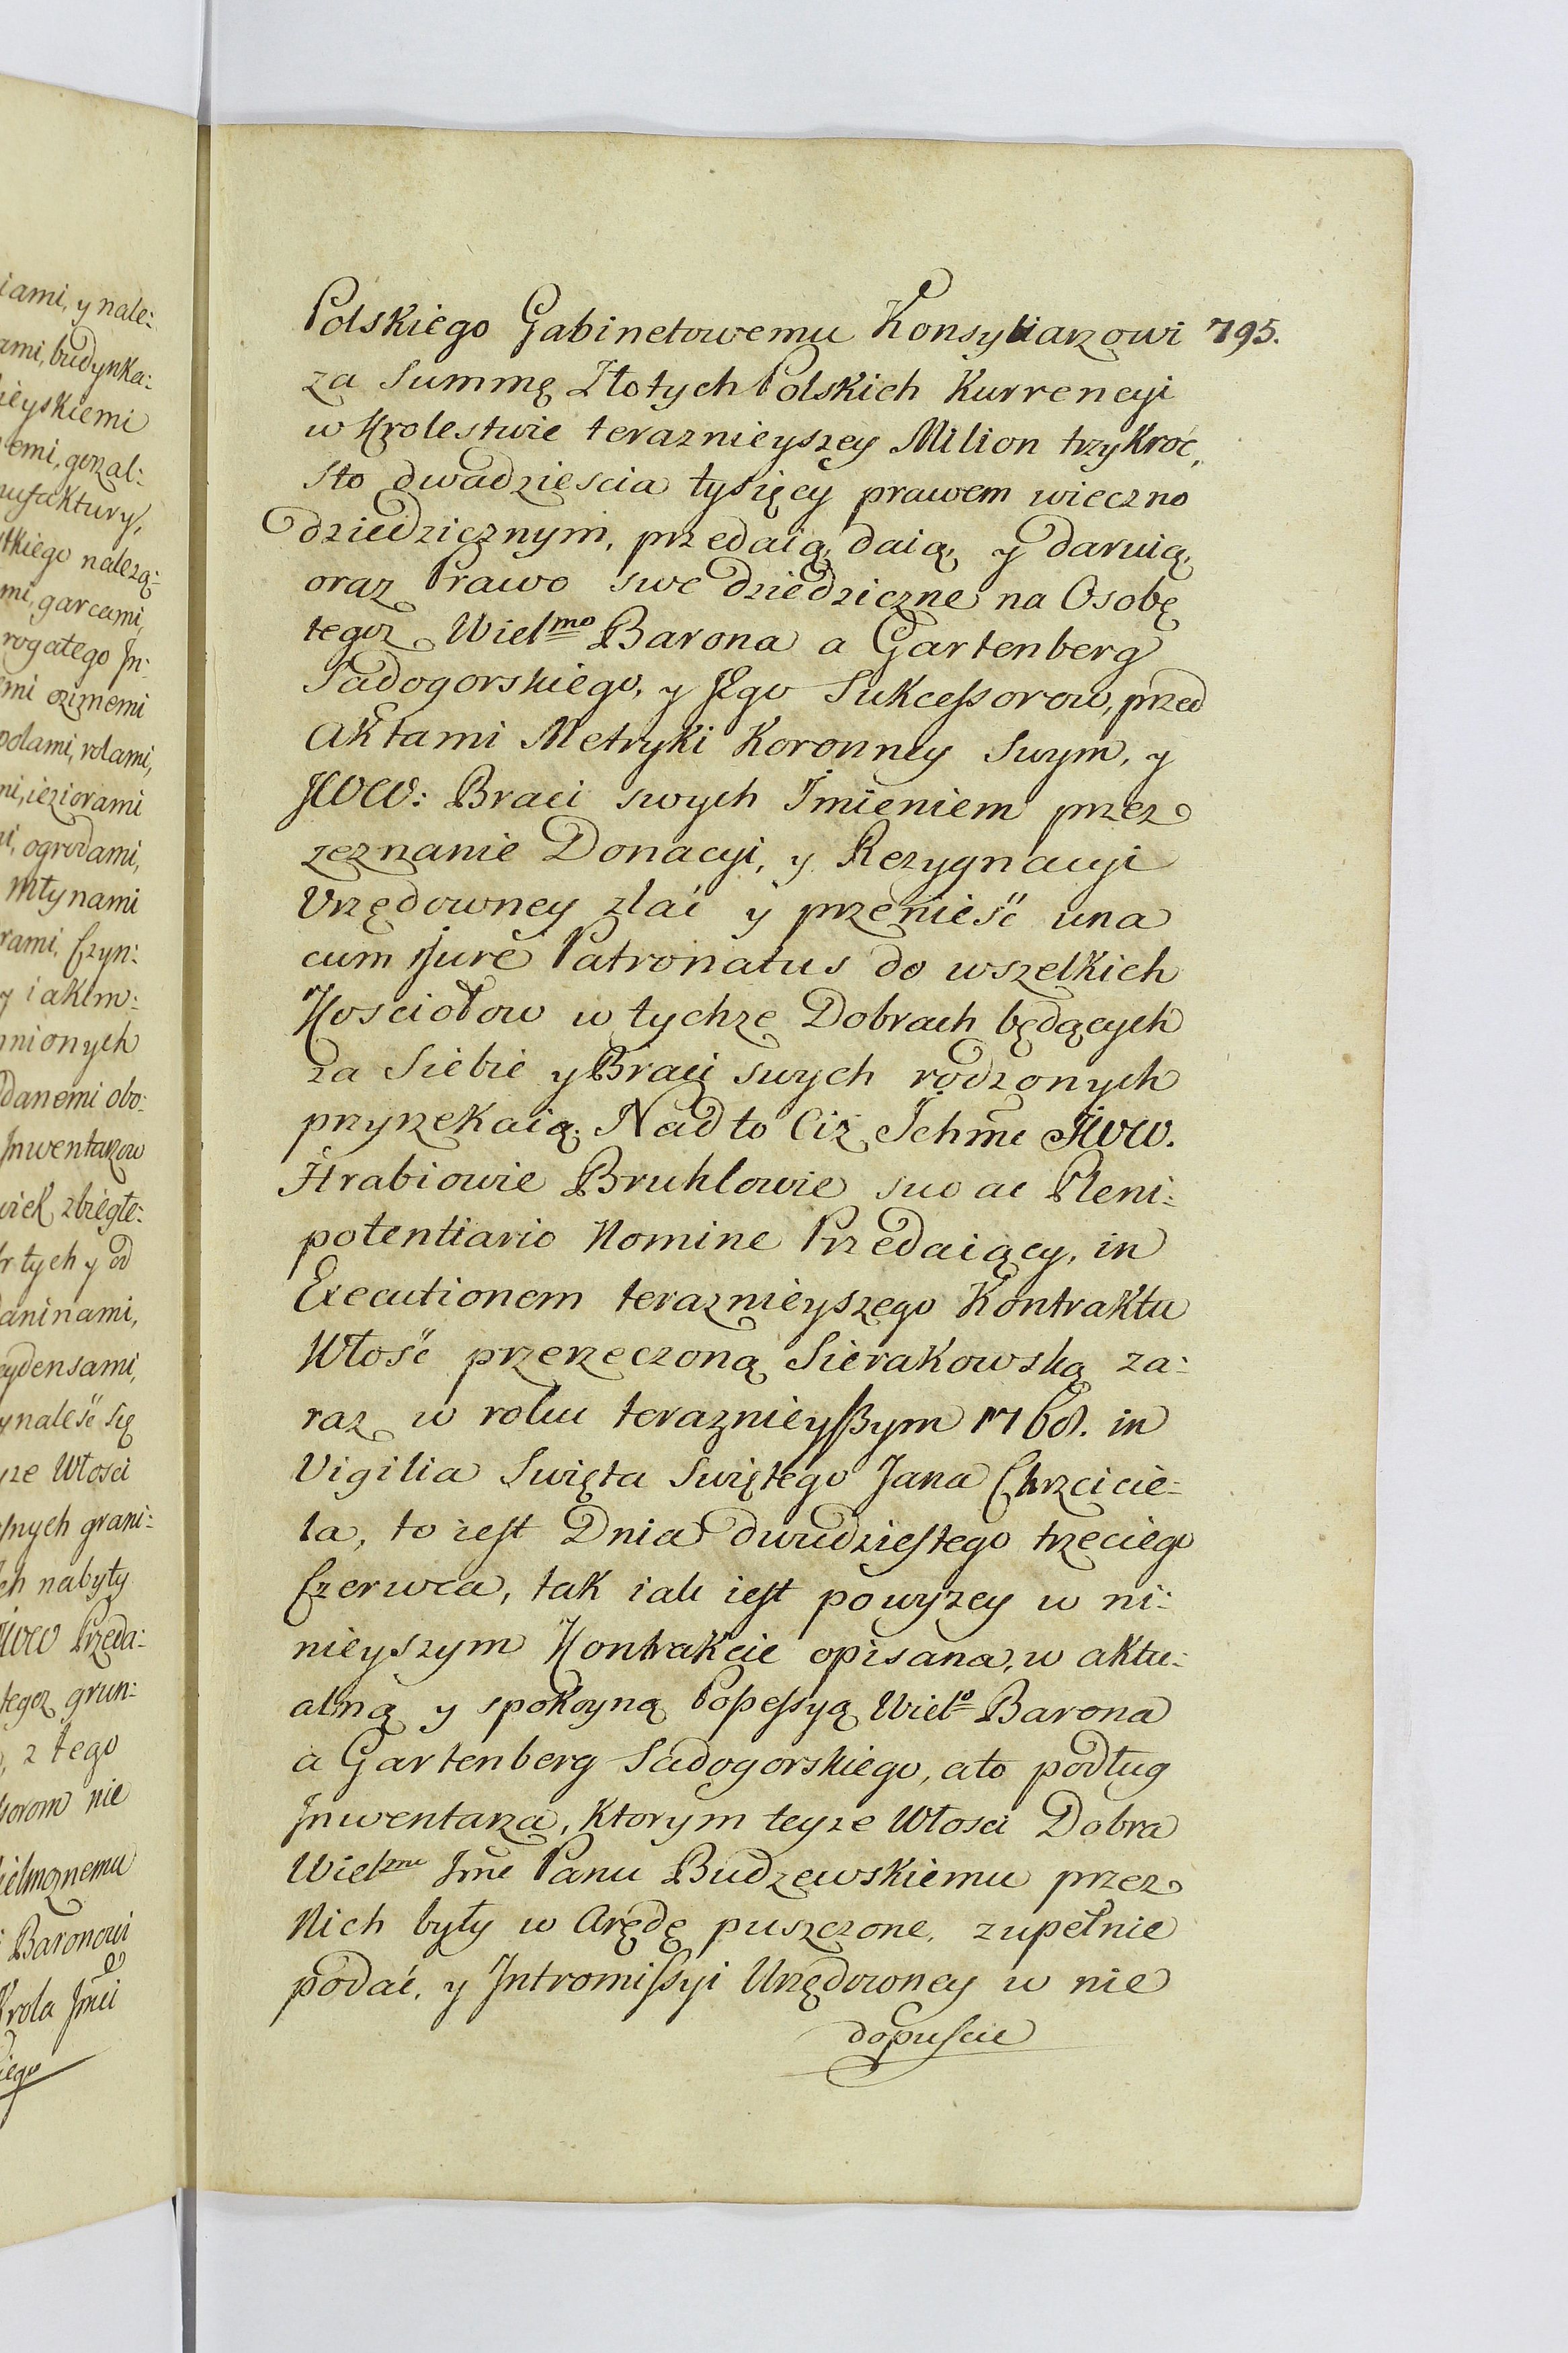 iami, y nale:
ami, budynka:
ieyskiemi
emi, gorzal:
nufaktury,
tkiego nalezą:
mi, garcami,
rogatego Jn:
emi oziznemi
polami, rolami,
ni, ieziorami
ni, ogrodami,
młynami
rami, Czyn:
y iakim:
mionych
danemi obo:
Jnwentarzow
wiek zbiegłe:
r tych y od
daninami,
cydensami,
ynaleść się
yze Włosci
snych grani:
ch nabyty
JWW Przeda:
tegoz grun:
z tego
sorom nie
ielmoznemu
Baronowi
Krola Jmci
iego
Polskiego Gabinetowemu Konsyliarzowi 795.
za Summę Złotych Polskich Kurrencyi
w Krolestwie teraznieyszey Milion trzykroć,
sto dwadziescia tysięcy prawem wieczno
dziedzicznym, przedaią, daią, y daruią,
oraz Prawo swe dziedziczne na Osobę
tegoz Wielmo Barona a Gartenberg
Sadogorskiego, y Jego Sukcessorow, przed
Aktami Metryki Koronney Swym, y
JWW: Braci swych Jmieniem przez
zeznanie Donacyi, y Rezygnacyi
Urzędowney zlać y przenieść una
cum Jure Patronatus do wszelkich
Kosciołow w tychze Dobrach będących
za Siebie y Braci swych rodzonych
przyrzekaią. Nadto Ciz Jchmc JWW.
Hrabiowie Bruhlowie suo ac Pleni:
potentiario Nomine Przedaiący, in
Executionem teraznieyszego Kontraktu
Włość przerzeczoną Sierakowską za:
raz w roku teraznieyszym 1768. in
Vigilia Swięta Swiętego Jana Chrzcicie:
la, to iest Dnia dwudziestego trzeciego
Czerwca, tak iak iest powyzey w ni:
nieyszym Kontrakcie opisana, w aktu:
alną y spokoyną Possessyą Wielo Barona
a Gartenberg Sadogorskiego, ato podług
Jnwentarza, Ktorym teyze Włosci Dobra
Wielzmu Jmc Panu Budzewskiemu przez
Nich były w Arędę puszczone, zupełnie
podać, y Jntromissyi Urzędowney w nie
dopuscic